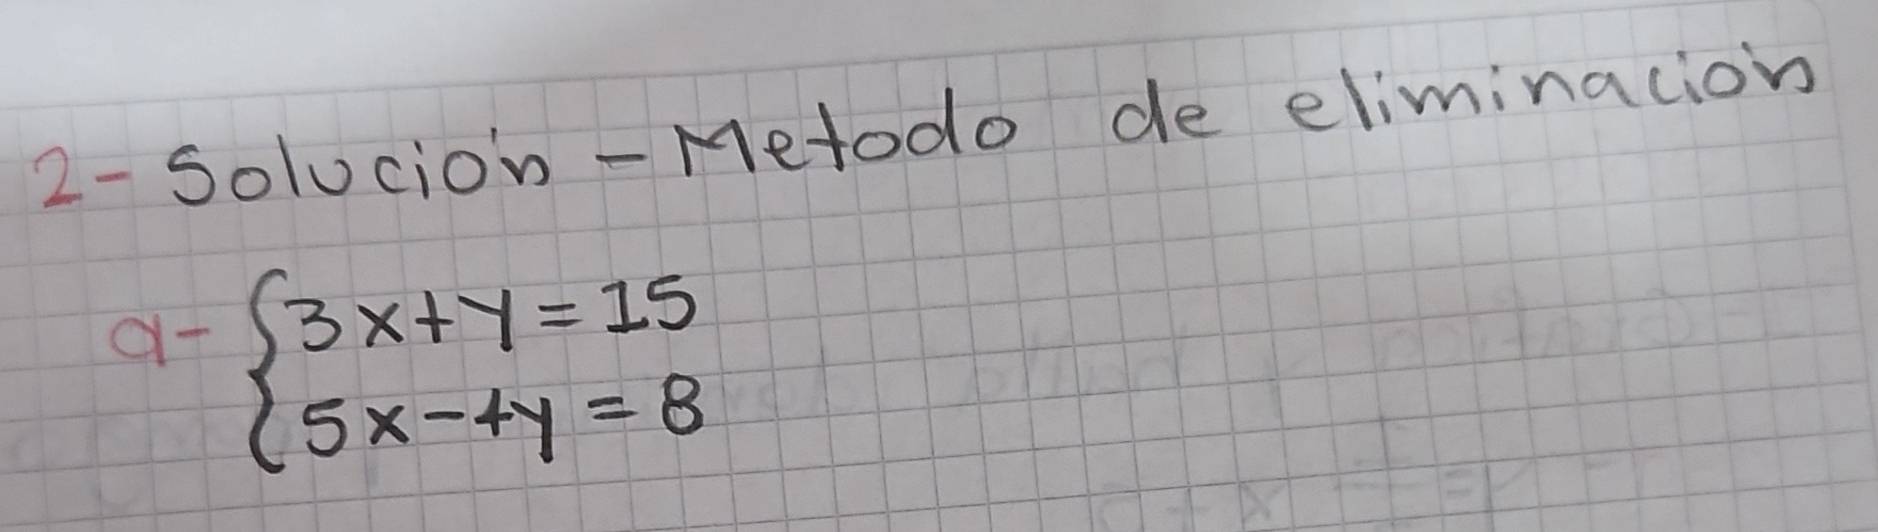 2- Solución - Metodo de eliminación
a- { 3x + y = 15
5x - 4y = 8